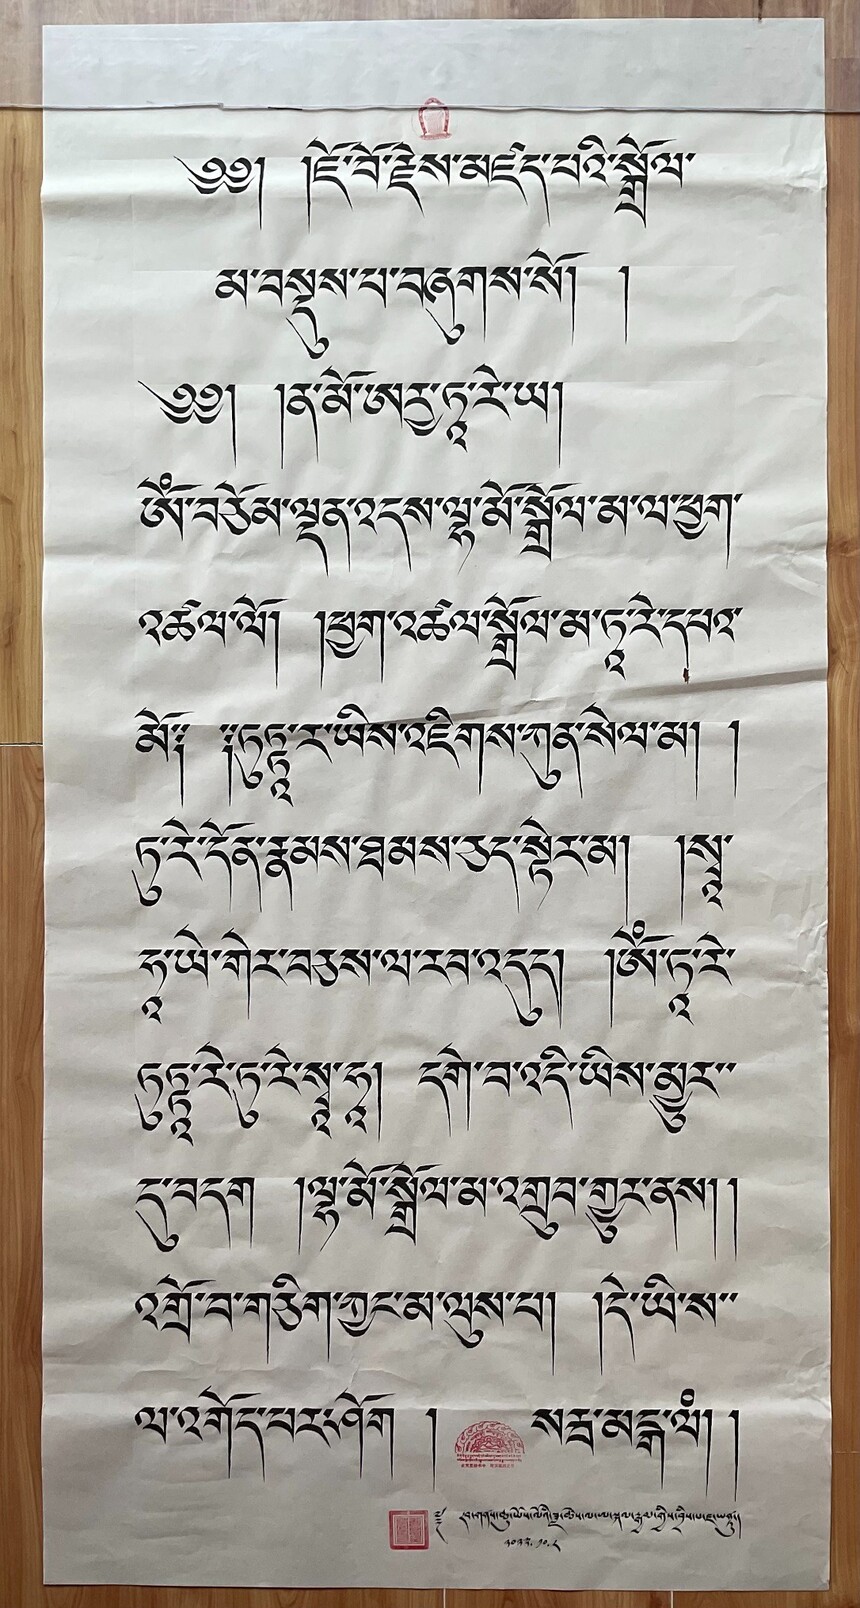 ༄༅། །ཇོ་བོ་རྗེས་མཛད་པའི་སྒྲོལ་
མ་བསྡུས་པ་བཞུགས་སོ། །
༄༅། །ན་མོ་ཨརྱ་ཏཱ་རེ་ཡ།
ཨོཾ་བཅོམ་ལྡན་འདས་ལྷ་མོ་སྒྲོལ་མ་ལ་ཕྱག་
འཚལ་ལོ། །ཕྱག་འཚལ་སྒྲོལ་མ་ཏཱ་རེ་དཔའ་
མོ༔ ༔ཏུཏྟཱ་ར་ཡིས་འཇིགས་ཀུན་སེལ་མ། །
ཏུ་རེ་དོན་རྣམས་ཐམས་ཅད་སྟེར་མ། །སྭཱ་
ཧཱ་ཡེ་གེར་བཅས་ལ་རབ་འདུད། །ཨོཾ་ཏཱ་རེ་
ཏུཏྟཱ་རེ་ཏུ་རེ་སྭཱ་ཧཱ། དགེ་བ་འདི་ཡིས་མྱུར་་
དུ་བདག །ལྷ་མོ་སྒྲོལ་མ་འགྲུབ་གྱུར་ནས། །
འགྲོ་བ་གཅིག་ཀྱང་མ་ལུས་པ། །དེ་ཡི་ས་་
ལ་འགོད་པར་ཤོག ། སརྦ་མངྒ་ལཾ། །